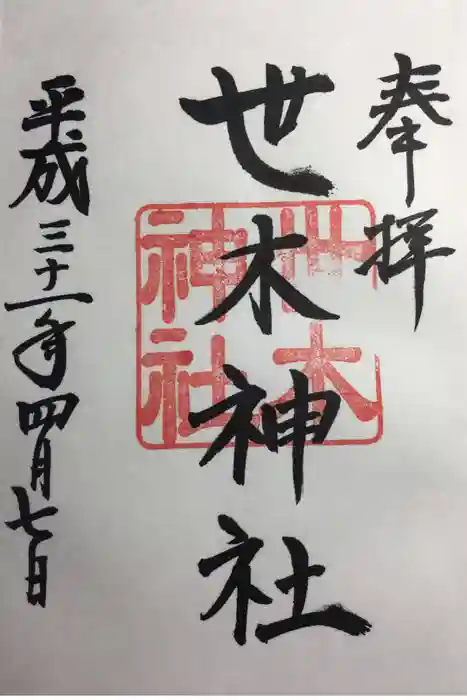 奉拝
世木神社
世木神社
平成三十一年四月七日